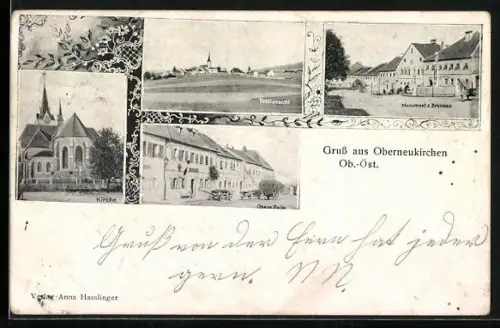 Totalansicht
Monument u. Brunnen
Kirche
Obere Zeile
Gruß aus Oberneukirchen
Ob.-Öst.
Gruß von der Fern hat jeder
gern.
Verlag Anna Hasslinger